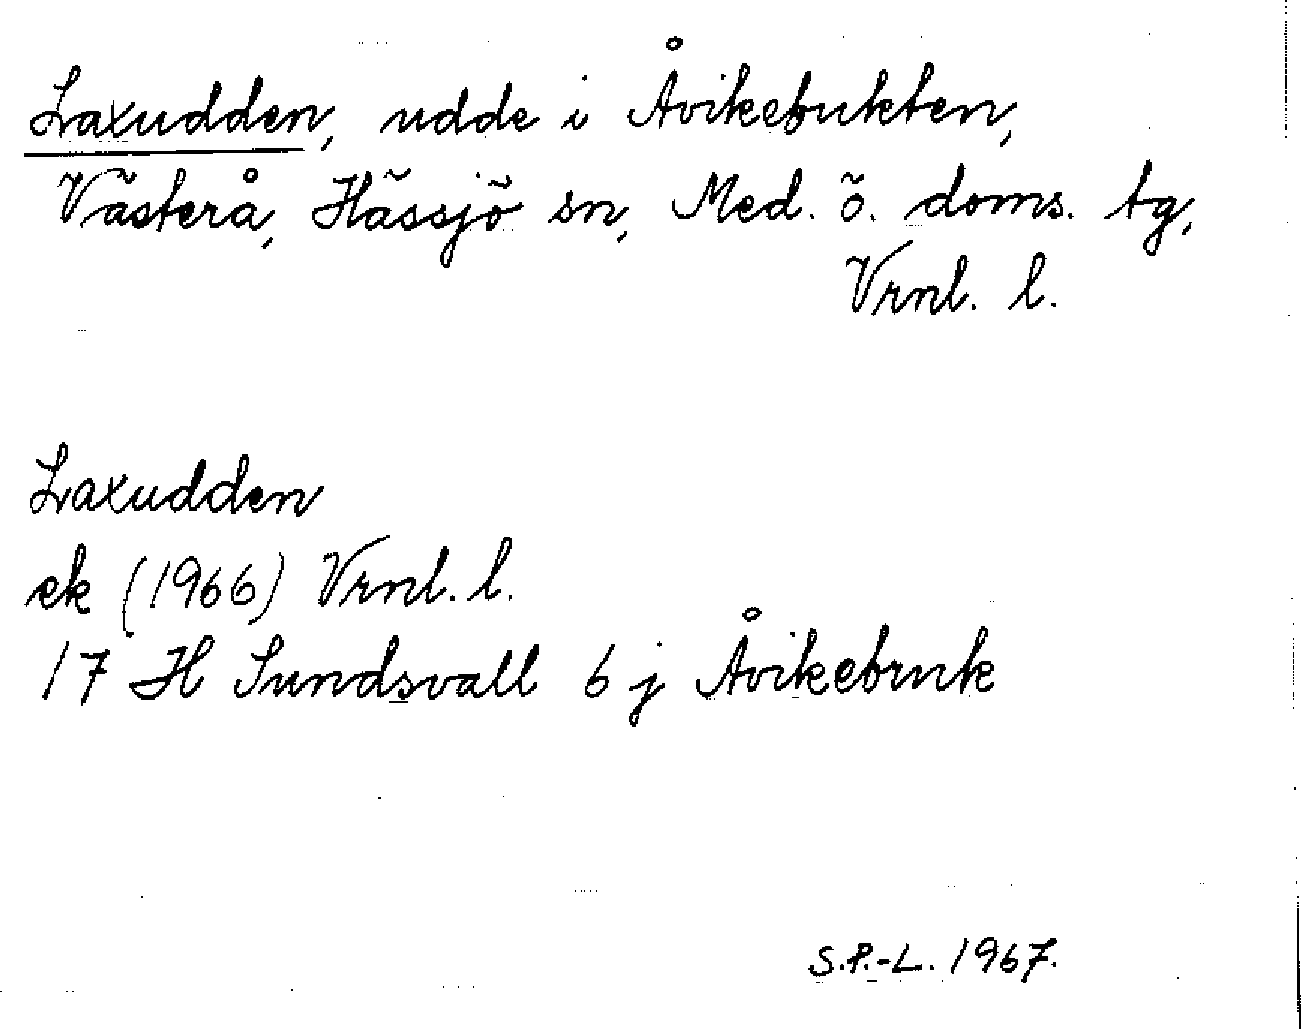 Laxudden, udde i Åvikebukten,
Västerå, Hässjö sn, Med. ö. doms. tg,
Vrnl. l.
Laxudden
ek (1966) Vrnl. l.
17 H Sundsvall 6 j Åvikebruk
S.P.-L. 1967.